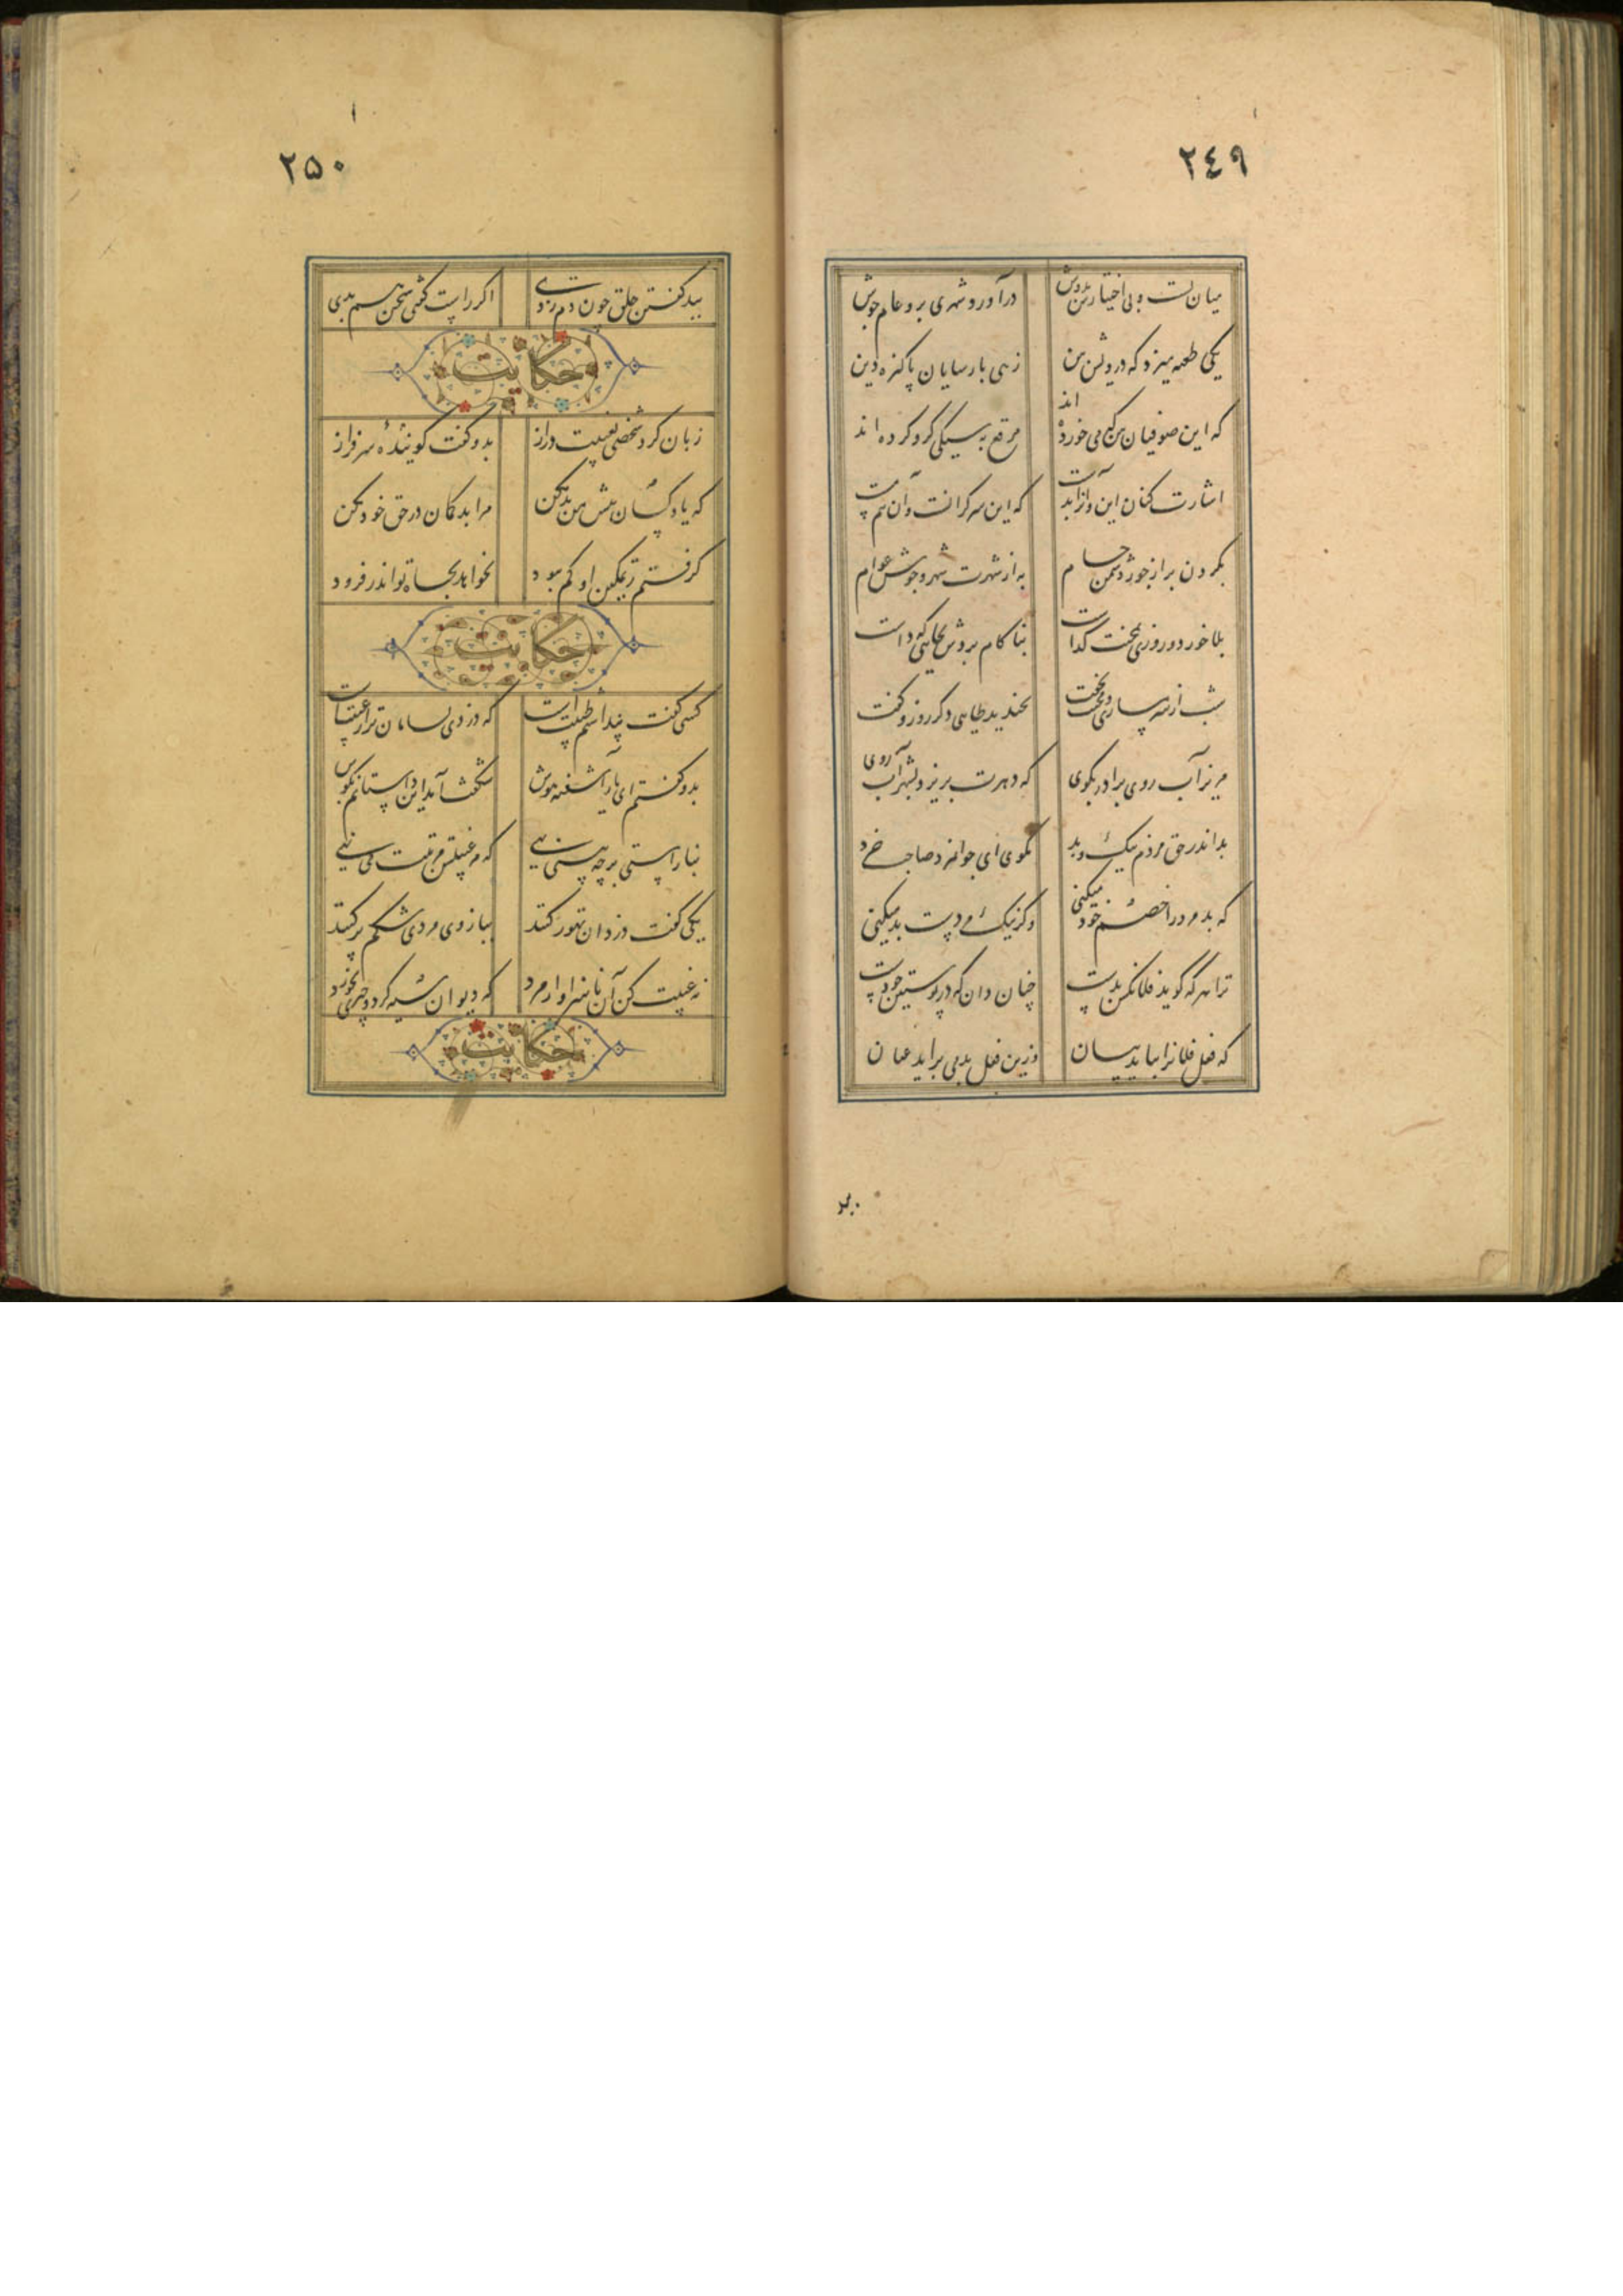 ۲٤۹
میان بست و بی اختیارش بدوش درآورد و شهری برو عام جوش
یکی طعنه میزد که درویش بین زهی پارسایان پاکیزه دین
که این صوفیان بین که می خورده اند مرقع به سیکی گرو کرده اند
اشارت کنان این و آنرا بدست که این سر گرانست و آن نیم مست
بگردن بر از جور دشمن حسام به از شهرت شهر و جوش عوام
بلا خورد و روزی بمحنت گذاشت بناکام بردش بجایی که داشت
شب از شرمساری و نخفت بخندید طایی دگر روز و گفت
مریز آب روی برادر بکوی که دهرت بریزد بشهر آب روی
بد اندر حق مردم نیک و بد مگوی ای جوانمرد صاحب خرد
که بد مرد را خصم خود میکنی وگر نیک مردست بد میکنی
ترا هر که گوید فلان کس بدست چنان دان که در پوستین خودست
که فعل فلانرا بباید بیان وزین فعل بد می براید عیان
۲۵۰
ببد گفتن خلق چون دم زدی اگر راست گفتی سخن هم بدی
حکایت
زبان کرد شخصی بغیبت دراز بدو گفت گوینده سرفراز
که یاد کسان پیش من بد مکن مرا بد گمان در حق خود مکن
گرفتم ز تمکین او کم بود نخواهد بجاه تو اندر فزود
حکایت
کسی گفت پنداشتم طیبت است که دزدی بسامان تر از غیبتست
بدو گفتم ای یار آشفته هوش شگفت آمد این داستانم بگوش
بناراستی در چه بینی بهی که بر غیبتش مرتبت می نهی
یکی گفت دزدان تهور کنند ببازوی مردی شکم پر کنند
نه غیبت کن آن ناسزاوار مرد که دیوان سیه کرد و چیزی نخورد
حکایت